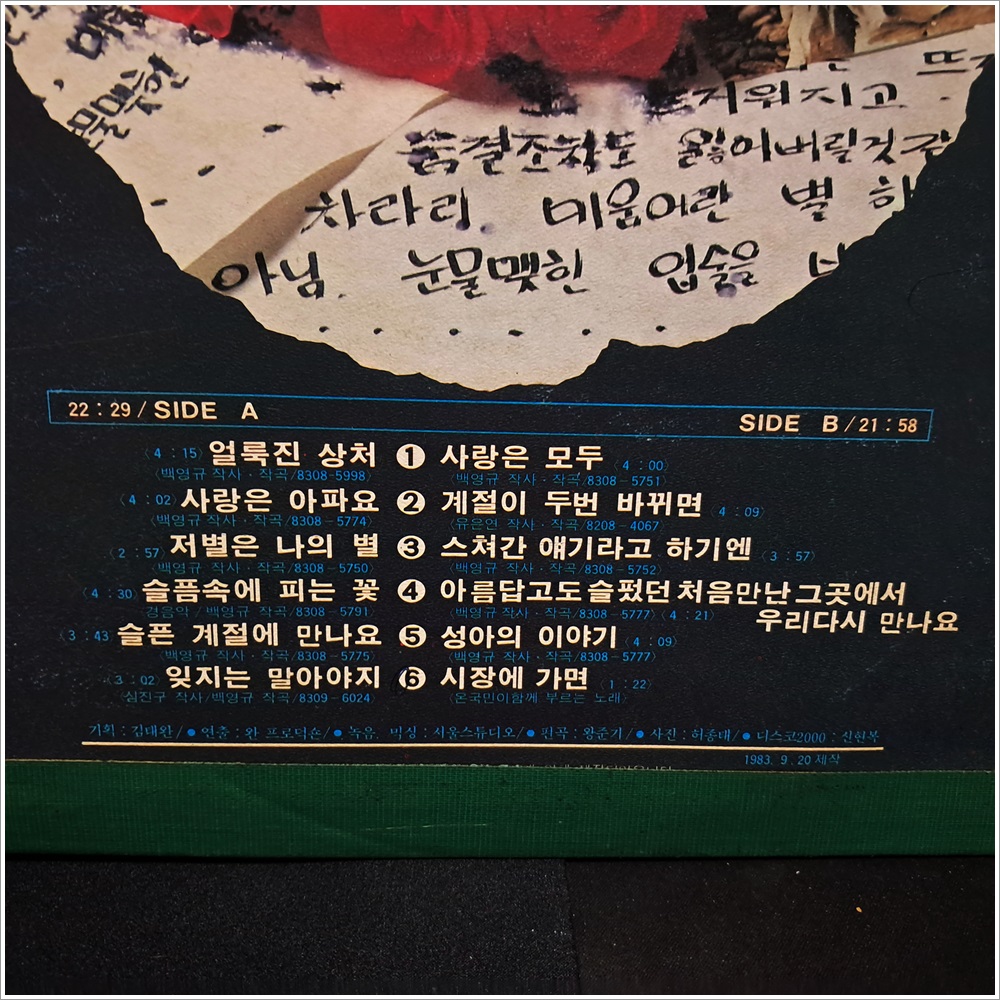 매
눈물맺힌
뜨
뜨거워지고
숨결조차도 잃어버릴것같
차라리, 미움이란 별 하
아님, 눈물맺힌 입술을
22 : 29 / SIDE A
SIDE B / 21 : 58
〈4 : 15〉 얼룩진 상처 ❶ 사랑은 모두 〈4 : 00〉
〈백영규 작사 · 작곡/8308-5998〉 〈백영규 작사 · 작곡/8308-5751〉
〈4 : 02〉 사랑은 아파요 ❷ 계절이 두번 바뀌면 〈4 : 09〉
〈백영규 작사 · 작곡/8308-5774〉 〈유은연 작사 · 작곡/8208-4067〉
〈2 : 57〉 저별은 나의 별 ❸ 스쳐간 얘기라고 하기엔 〈3 : 57〉
〈백영규 작사 · 작곡/8308-5750〉 〈백영규 작사 · 작곡/8308-5752〉
〈4 : 30〉 슬픔속에 피는 꽃 ❹ 아름답고도슬펐던처음만난그곳에서
경음악 / 백영규 작곡/8308-5791〉 〈백영규 작사 · 작곡/8308-5777〉〈4 : 21〉 우리다시 만나요
〈3 : 43 슬픈 계절에 만나요 ❺ 성아의 이야기 〈4 : 09〉
〈백영규 작사 · 작곡/8308-5775〉 〈백영규 작사 · 작곡/8308-5777〉
〈3 : 02〉 잊지는 말아야지 ❻ 시장에 가면 〈1 : 22〉
심진구 작사/백영규 작곡/8309-6024〉 〈온국민이함께 부르는 노래〉
기획 : 김대완/●연출 : 완 프로덕숀/●녹음, 믹싱 : 서울스튜디오/●편곡 : 왕준기/●사진 : 허종태/●디스코2000 : 신현복
1983. 9. 20 제작